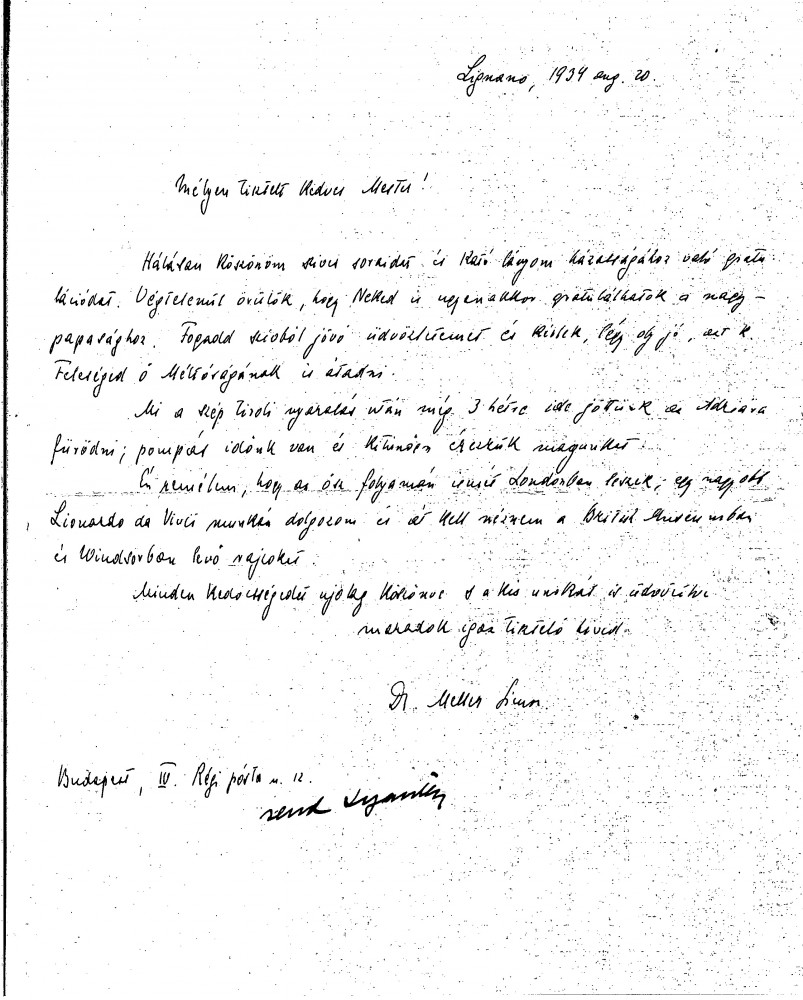 Lignano, 1934 aug. 20.
Mélyen tisztelt Kedves Mester!
Hálásan köszönöm szives soraidat és Kató lányom házasságához való gratu-
lációdat. Végtelenül örülök, hogy Neked is ugyanakkor gratulálhatok a nagy-
papasághoz. Fogadd szivből jövő üdvözletemet és kérlek, légy oly jó, azt k.
Feleséged ő Méltóságának is átadni.
Mi a szép tiroli nyaralás után még 3 hétre ide jöttünk az Adriára
fürödni; pompás időnk van és kitünően érezzük magunkat.
Én remélem, hogy az ősz folyamán ismét Londonban leszek; egy nagyobb
Lionardo da Vinci munkán dolgozom és át kell néznem a British Museumban
és Windsorban levő rajzokat.
Minden kedvességedet ujolag köszönve s a kis unokát is üdvözölve
maradok igaz tisztelő hived
Dr. Meller Simon
Budapest, IV. Régi pósta u. 12.